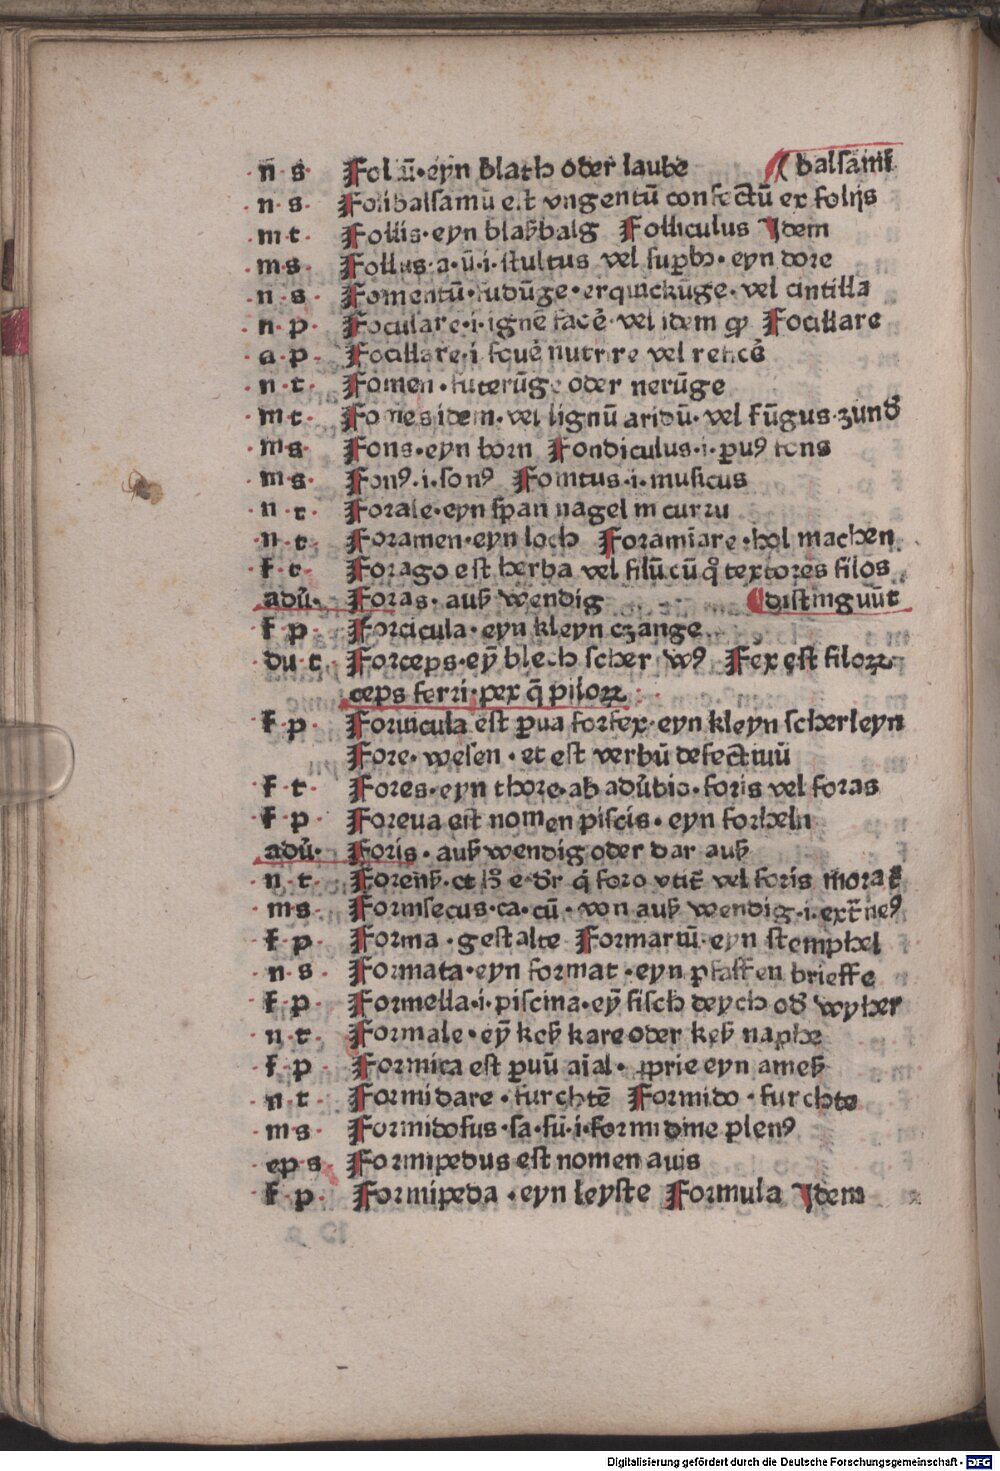 n s · Foliū · eyn blath oder laube ( balsami
· n · s · Folibalsamū est vngentū confectū ex folijs
· m t · Follis · eyn blaßbalg Folliculus Idem
· m s · Follus · a · ū · i · stultus vel supbꝰ · eyn dore
· n · s · Fomentū · fudūge · erquickūge · vel cintilla
· n · p · Foculare · i · ignē facē vel idem qd Focillare
· a · p · Focillare · i fouē nutrire vel reficē
· n · t · Fomen · futerūge oder nerūge
m t · Fomes idem · vel lignū aridū · vel fūgus · zundˀ
· m s · Fons · eyn born Fondiculus · i · puꝰ fons
· m s · Fonꝰ · i · sonꝰ Fonitus · i · musicus
· n · t · Forale · eyn span nagel in curru
· n · t · Foramen · eyn loch Foramiare · hol machen
· f · t · Forago est herba vel filū cū qͦ textores filos
adū · Foras · auß wendig distinguūt
· f p · Forcicula · eyn kleyn czange
du t · Forceps · ey̅ blech scher vꝰ Fex est filoꝝ
ceps ferri · pex q̄ piloꝝ
· f p · Foruicula est pua forfex · eyn kleyn scherleyn
Fore · wesen · et est verbū defectiuū
· f · t · Fores · eyn thore · ab adūbio · foris vel foras
· f · p · Foreua est nomen piscis · eyn forheln
adū · Foris · auß wendig oder dar auß
· n · t · Forenß · ct hͦ e dr q foro vtit vel foris morat
· m s · Forinsecus · ca · cū · von auß wendig · i · extneꝰ
· f · p · Forma · gestalte Formariū · eyn stemphel
· n · s · Formata · eyn format · eyn pfaffen brieffe
· f · p · Formella · i · piscina · ey̅ fisch deych odˀ wyher
· n · t · Formale · ey̅ keß kare oder keß naphe
· f · p · Formica est puū aial · pprie eyn ameß
· n t · Formidare · furchtē Formido · furchte
· m s · Formidosus · sa · sū · i · formidine plenꝰ
· ep s · Formipedus est nomen auis
· f · p · Formipeda · eyn leyste Formula Idem
Digitalisierung gefördert durch die Deutsche Forschungsgemeinschaft - DFG